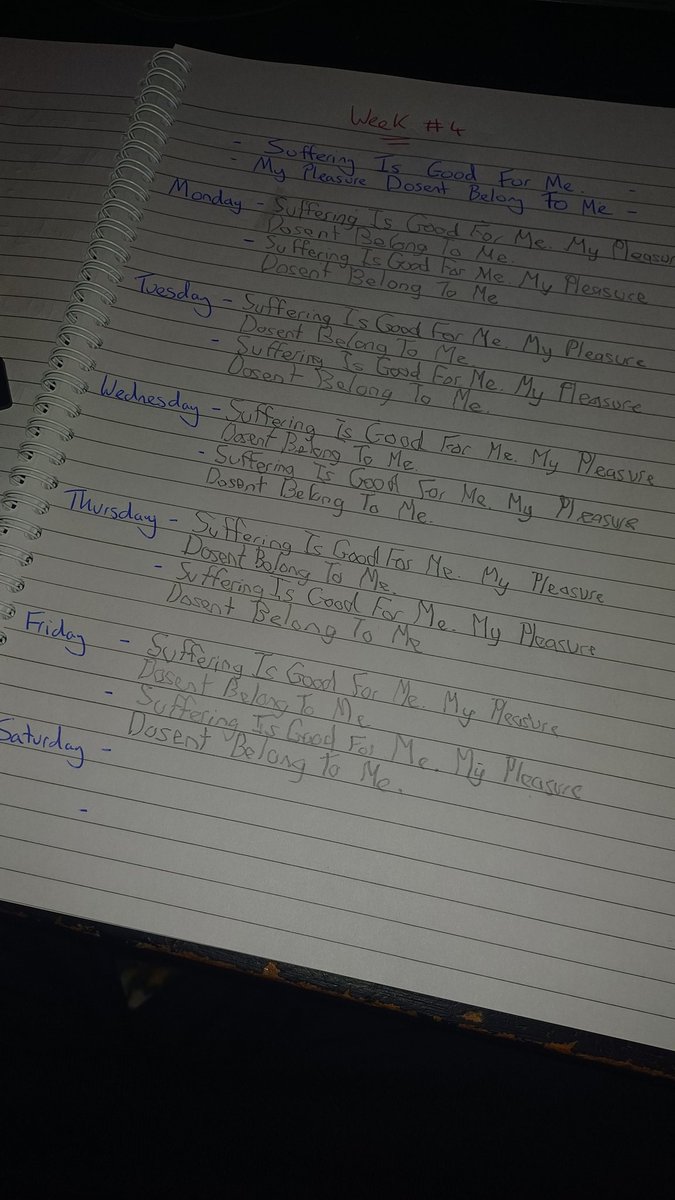 Week #4
- Suffering Is Good For Me. -
- My Pleasure Dosent Belong To Me -
Monday - Suffering Is Good For Me. My Pleasur
Dosent Belong To Me.
- Suffering Is Good For Me My Pleasure
Dosent Belong To Me
Tuesday - Suffering Is Good For Me. My Pleasure
Dosent Belong To Me
- Suffering Is Good For Me. My Pleasure
Dosent Belong To Me.
Wednesday - Suffering Is Good For Me. My Pleasure
Dosent Belong To Me.
- Suffering Is Good For Me. My Pleasure
Dosent Belong To Me.
Thursday - Suffering Is Good For Me. My Pleasure
Dosent Belong To Me.
- Suffering Is Good For Me. My Pleasure
Dosent Belong To Me
Friday - Suffering Is Good For Me. My Pleasure
Dosent Belong To Me
- Suffering Is Good For Me. My Pleasure
Dosent Belong To Me.
Saturday -
-